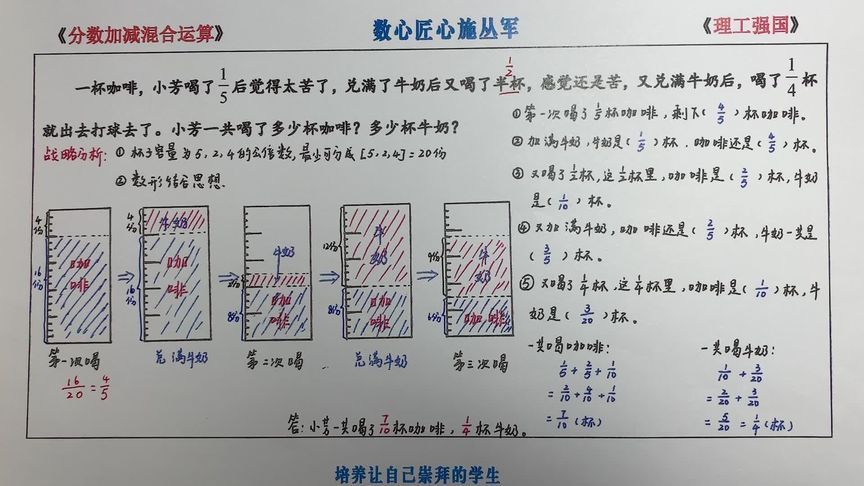 《分数加减混合运算》 数心匠心施丛军 《理工强国》
一杯咖啡，小芳喝了1/5后觉得太苦了，兑满了牛奶后又喝了半杯，感觉还是苦，又兑满牛奶后，喝了1/4杯
1/2
就出去打球去了。小芳一共喝了多少杯咖啡？多少杯牛奶？
战略分析：① 杯子容量为5，2，4的公倍数，最少可分成[5，2，4]=20份
② 数形结合思想.
① 第一次喝了1/5杯咖啡，剩下（4/5）杯咖啡。
② 加满牛奶，牛奶是（1/5）杯．咖啡还是（4/5）杯。
③ 又喝了1/2杯，这1/2杯里，咖啡是（2/5）杯，牛奶
是（1/10）杯。
④ 又加满牛奶，咖啡还是（2/5）杯，牛奶一共是
（3/5）杯。
⑤ 又喝了1/4杯，这1/4杯里，咖啡是（1/10）杯，牛
奶是（3/20）杯。
4份
16份
咖啡
第一次喝
16/20=4/5
4份
16份
牛奶
咖啡
兑满牛奶
牛奶
2份
8份
咖啡
第二次喝
12份
8份
牛奶
咖啡
兑满牛奶
9份
6份
牛奶
咖啡
第三次喝
一共喝咖啡：
1/5+2/5+1/10
=2/10+4/10+1/10
=7/10（杯）
一共喝牛奶：
1/10+3/20
=2/20+3/20
=5/20=1/4（杯）
答：小芳一共喝了7/10杯咖啡，1/4杯牛奶。
培养让自己崇拜的学生